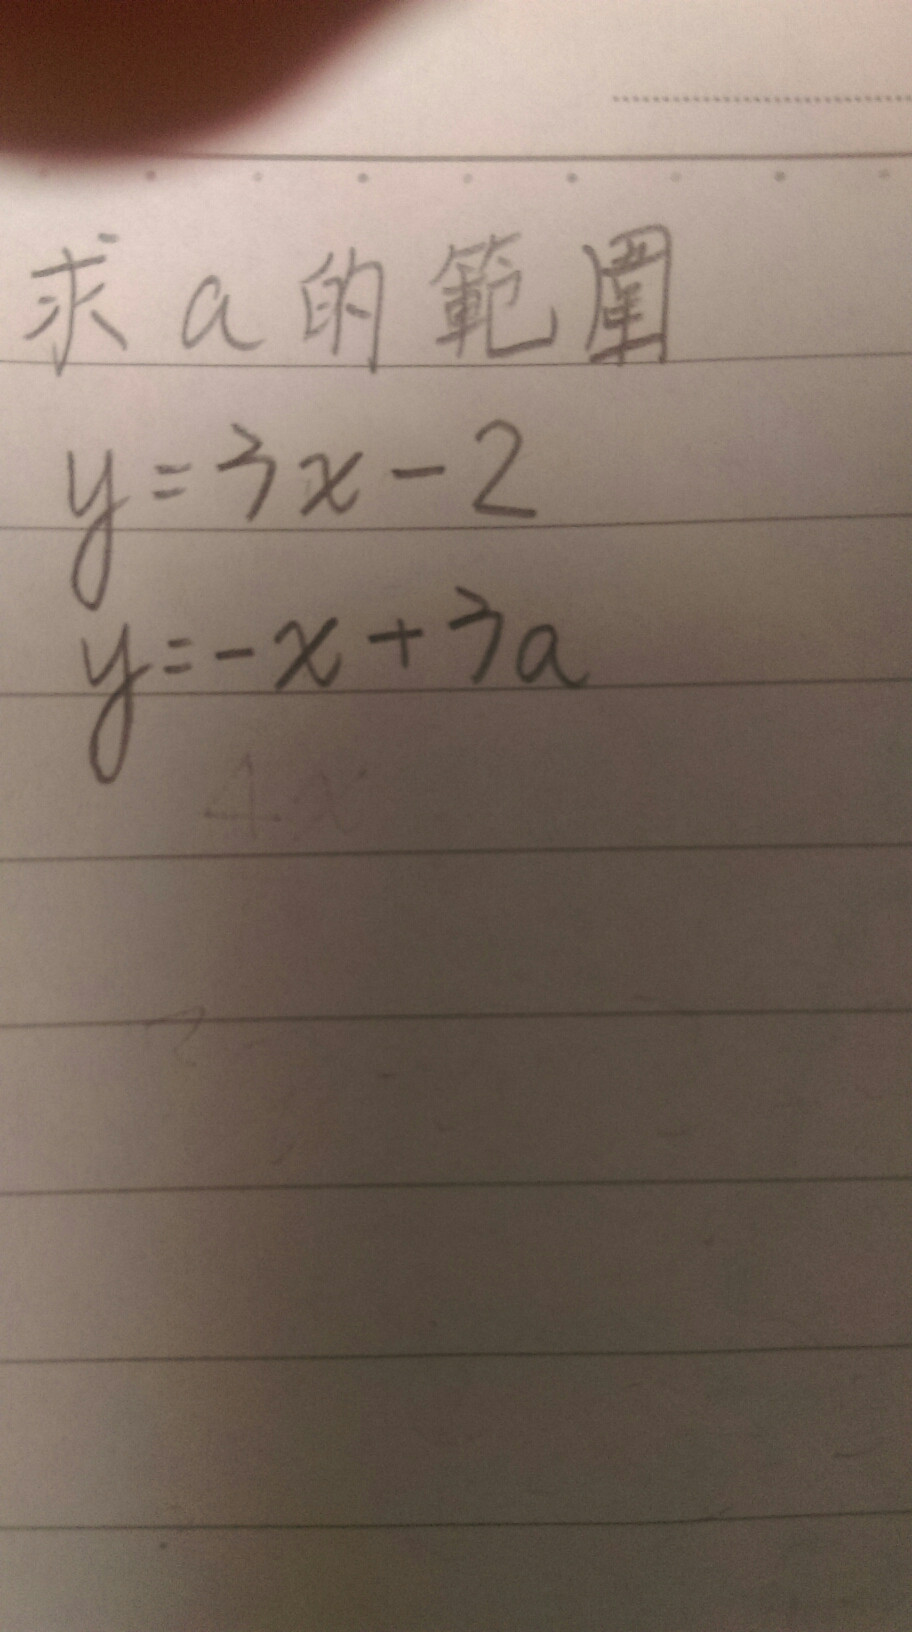 求a的範圍
y=3x-2
y=-x+3a
4x